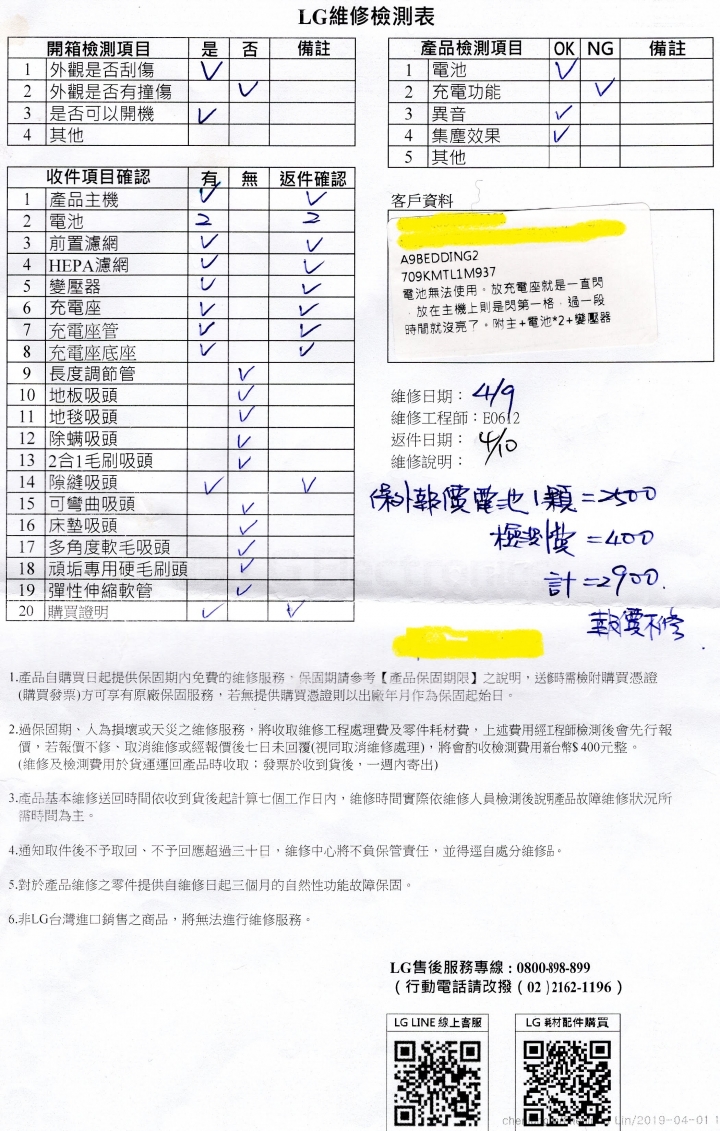 LG維修檢測表
開箱檢測項目 是 否 備註
1 外觀是否刮傷 ✓
2 外觀是否有撞傷 ✓
3 是否可以開機 ✓
4 其他
產品檢測項目 OK NG 備註
1 電池 ✓
2 充電功能 ✓
3 異音 ✓
4 集塵效果 ✓
5 其他
收件項目確認 有 無 返件確認
1 產品主機 ✓ ✓
2 電池 2 2
3 前置濾網 ✓ ✓
4 HEPA濾網 ✓ ✓
5 變壓器 ✓ ✓
6 充電座 ✓ ✓
7 充電座管 ✓ ✓
8 充電座底座 ✓ ✓
9 長度調節管 ✓
10 地板吸頭 ✓
11 地毯吸頭 ✓
12 除螨吸頭 ✓
13 2合1毛刷吸頭 ✓
14 隙縫吸頭 ✓ ✓
15 可彎曲吸頭 ✓
16 床墊吸頭 ✓
17 多角度軟毛吸頭 ✓
18 頑垢專用硬毛刷頭 ✓
19 彈性伸縮軟管 ✓
20 購買證明 ✓ ✓
客戶資料
A9BEDDING2
709KMTL1M937
電池無法使用。放充電座就是一直閃
，放在主機上則是閃第一格，過一段
時間就沒亮了。附主+電池*2+變壓器
維修日期： 4/9
維修工程師：E0612
返件日期： 4/10
維修說明：
保外報價電池1顆=2500
檢測費=400
計=2900.
報價不修
1.產品自購買日起提供保固期內免費的維修服務、保固期請參考【產品保固期限】之說明，送修時需檢附購買憑證
(購買發票)方可享有原廠保固服務，若無提供購買憑證則以出廠年月作為保固起始日。
2.過保固期、人為損壞或天災之維修服務，將收取維修工程處理費及零件耗材費，上述費用經工程師檢測後會先行報
價，若報價不修、取消維修或經報價後七日未回覆(視同取消維修處理)，將會酌收檢測費用新台幣$ 400元整。
(維修及檢測費用於貨運運回產品時收取；發票於收到貨後，一週內寄出)
3.產品基本維修送回時間依收到貨後起計算七個工作日內，維修時間實際依維修人員檢測後說明產品故障維修狀況所
需時間為主。
4.通知取件後不予取回、不予回應超過三十日，維修中心將不負保管責任，並得逕自處分維修品。
5.對於產品維修之零件提供自維修日起三個月的自然性功能故障保固。
6.非LG台灣進口銷售之商品，將無法進行維修服務。
LG售後服務專線：0800-898-899
（行動電話請改撥（02）2162-1196）
LG LINE 線上客服
LG 耗材配件購買
Lin/2019-04-01 1